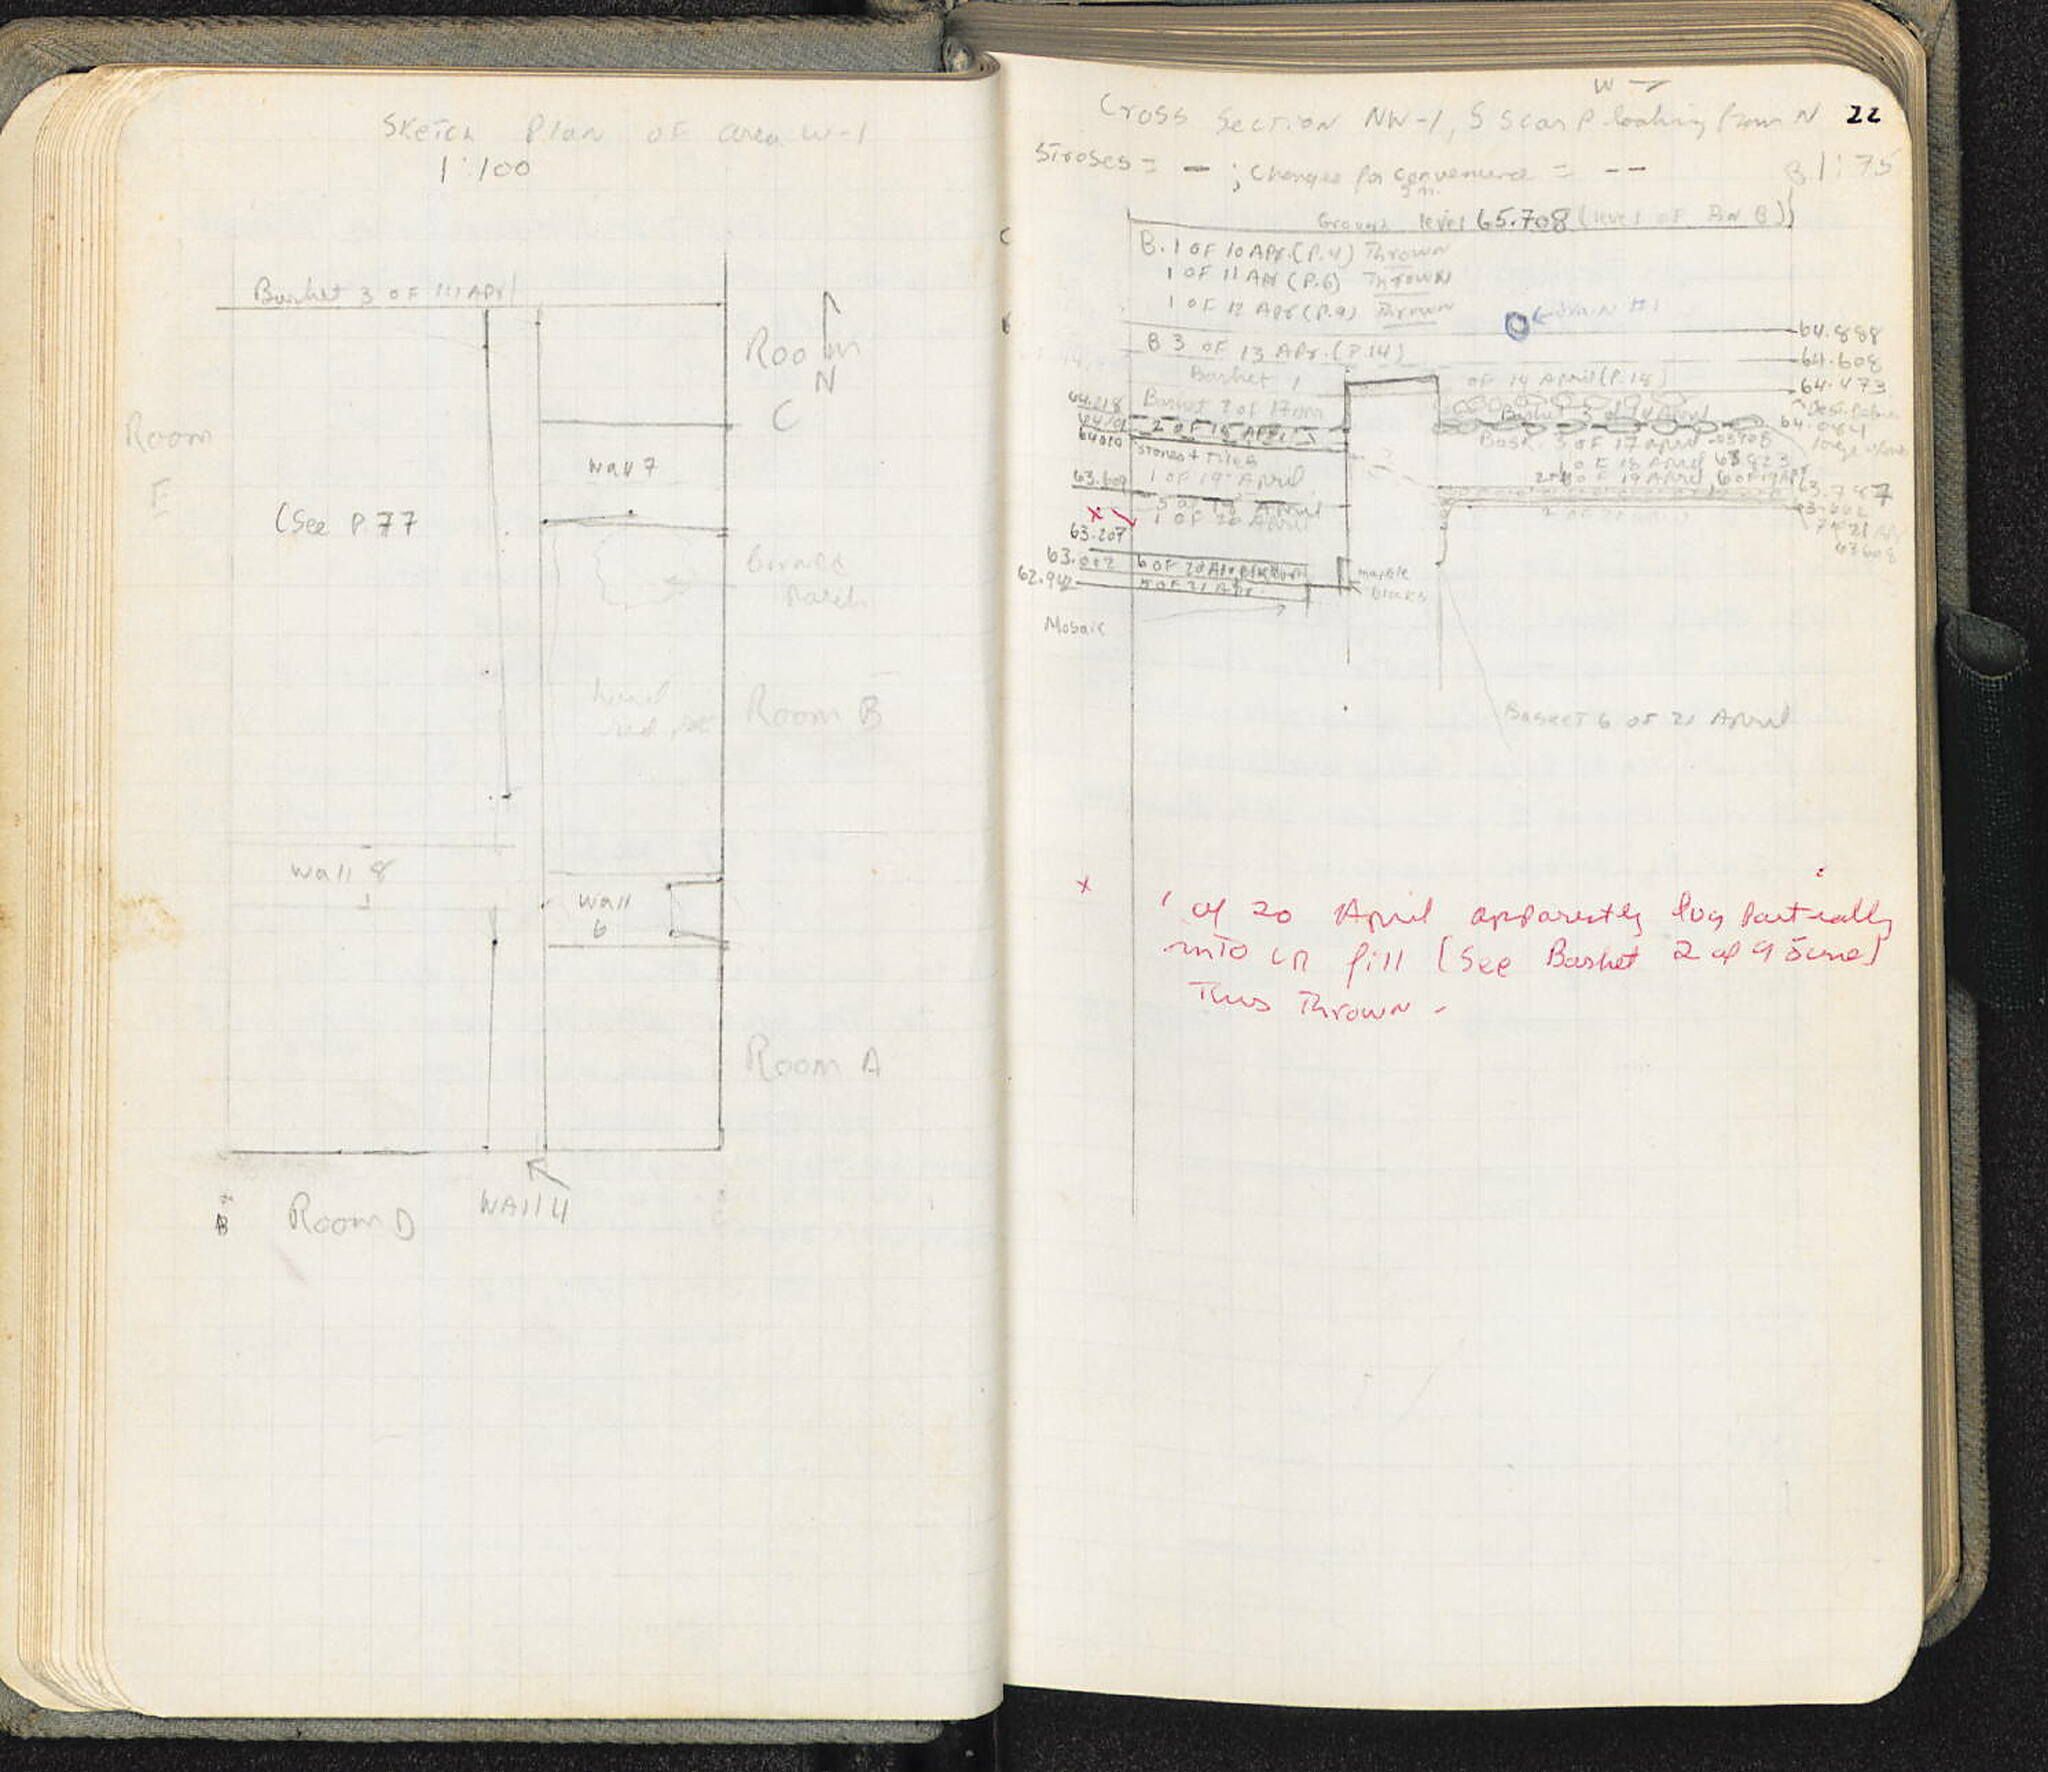 Sketch Plan of area W-1
1:100
Basket 3 of 14 Apr
Room
C
N
Room
E
Wall 7
(See P. 77
burned
patch
hard
red
Room B
Wall 8
Wall
6
Room A
B
Room D
Wall 4
W
22
Cross Section NW-1, S scarp looking from N
Stroses = – ; Changes for convenience = --
1:75
Ground level 65.708 (level of Pin B)
B. 1 of 10 Apr. (P. 4) Thrown
1 of 11 Apr (P. 6) Thrown
1 of 12 Apr (P. 9) Thrown
Drain #1
64.888
B 3 of 13 Apr. (P. 14)
64.608
Basket 1 of 14 April (P. 18)
64.473
64.218
Basket 2 of 17
Basket 3 of 14 April
64.084
2 of 18 Apr
Bask. 3 of 17 April
64.010
stones + tiles
1 of 18 April 63.823
63.609
1 of 19 April
2 of 19 April, 6 of 19 Apr
63.787
5 of 19 April
x
1 of 20 April
63.207
63.002
6 of 20 Apr
marble
blocks
62.942
5 of 21 Apr.
63.608
Mosaic
Basket 6 of 21 April
x
1 of 20 April apparently dug partially
into LR fill (See Basket 2 of 9 June)
Thus Thrown -